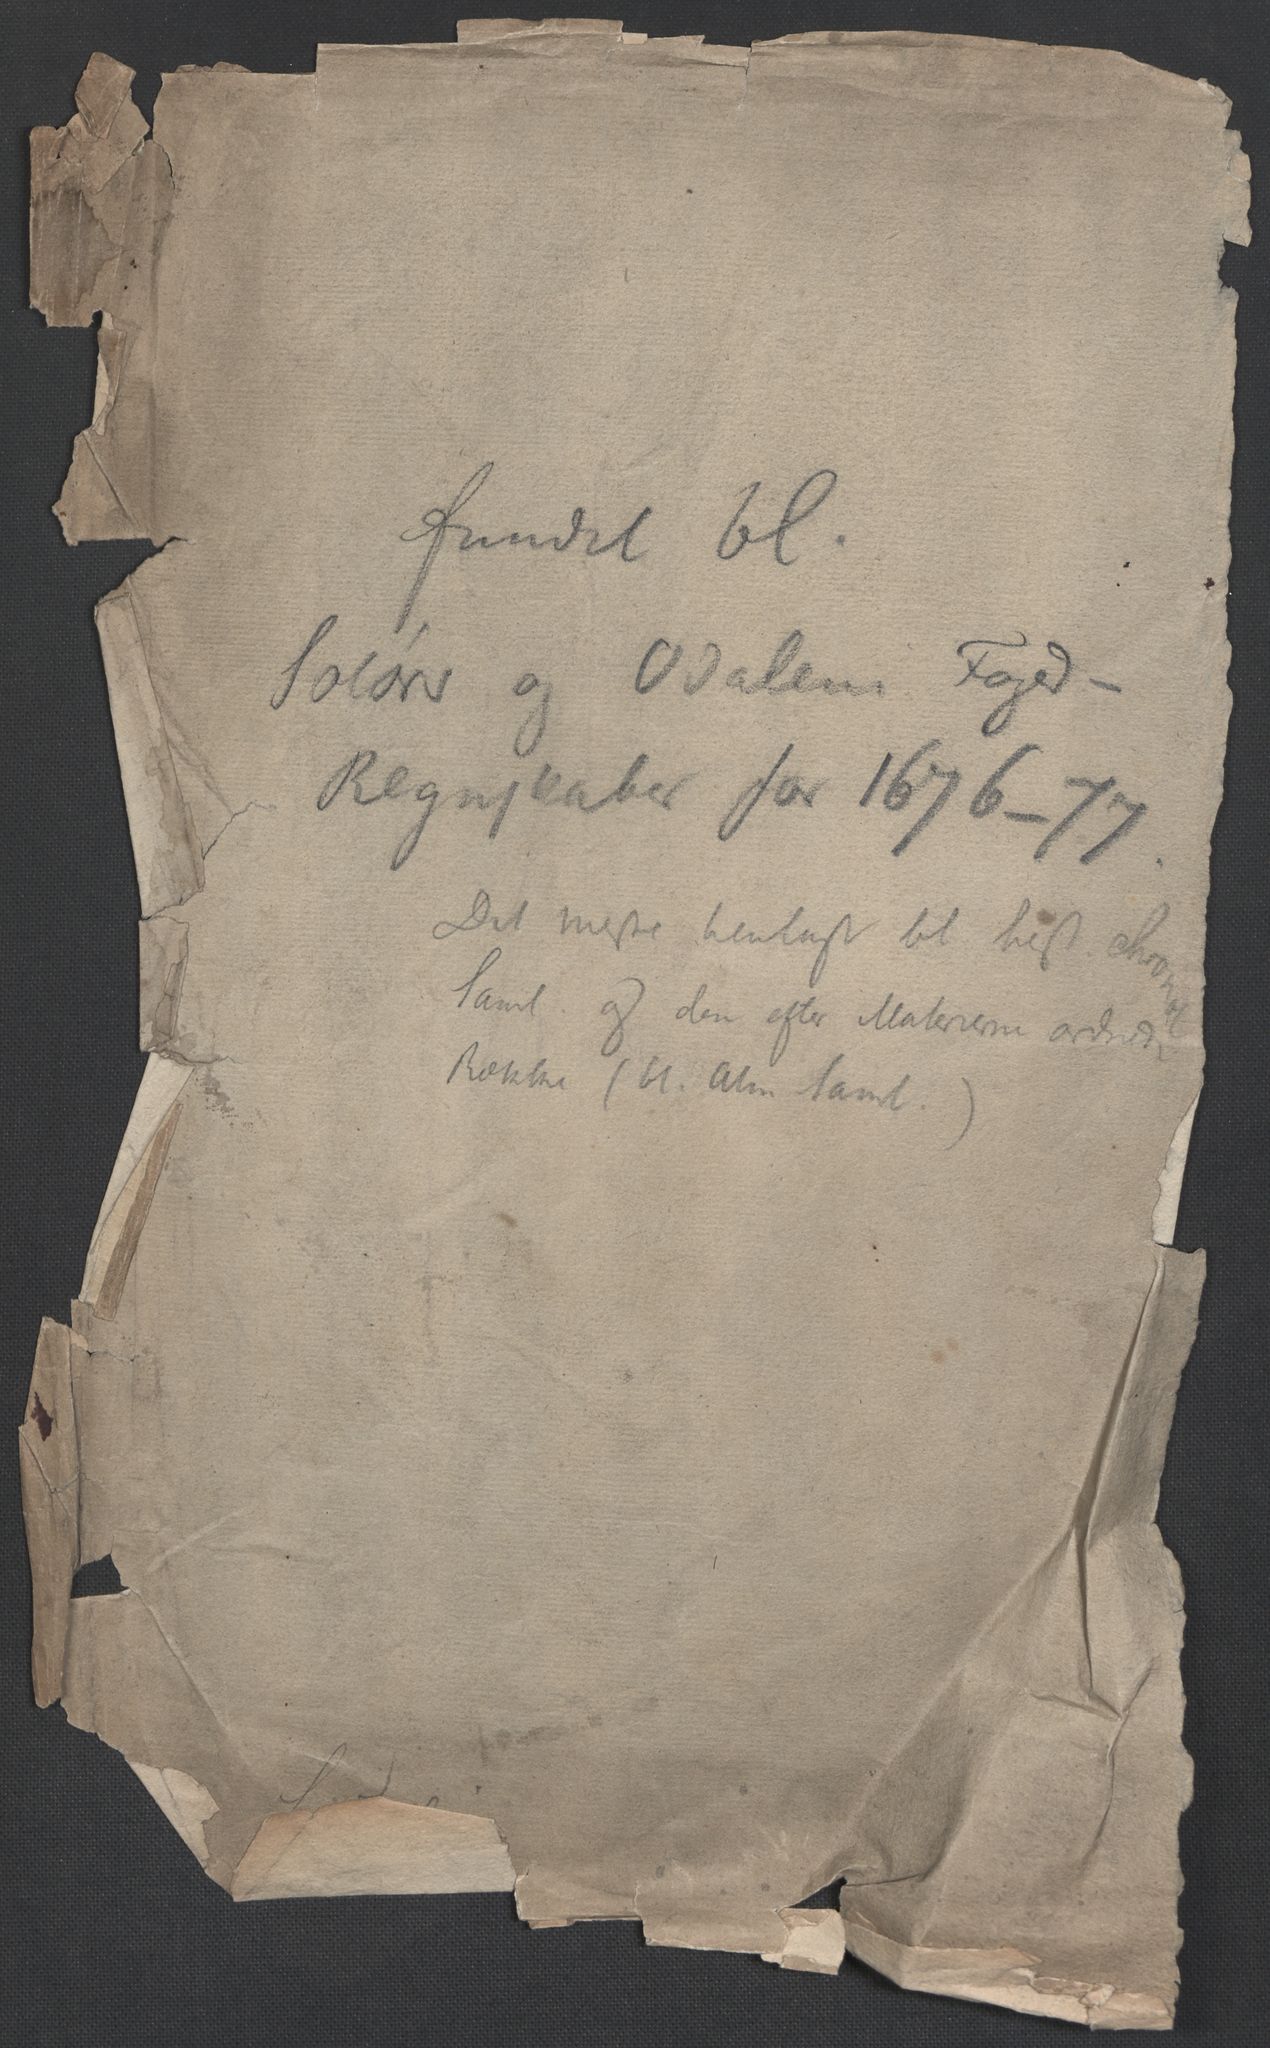 fundet bl.
Solørs og Odalens Foged-
Regnskaber for 1676-77.
Det meste henlagt til hist. chronol
Saml. og den efter Materierne ordnede
Række (bl. Alm Saml.)